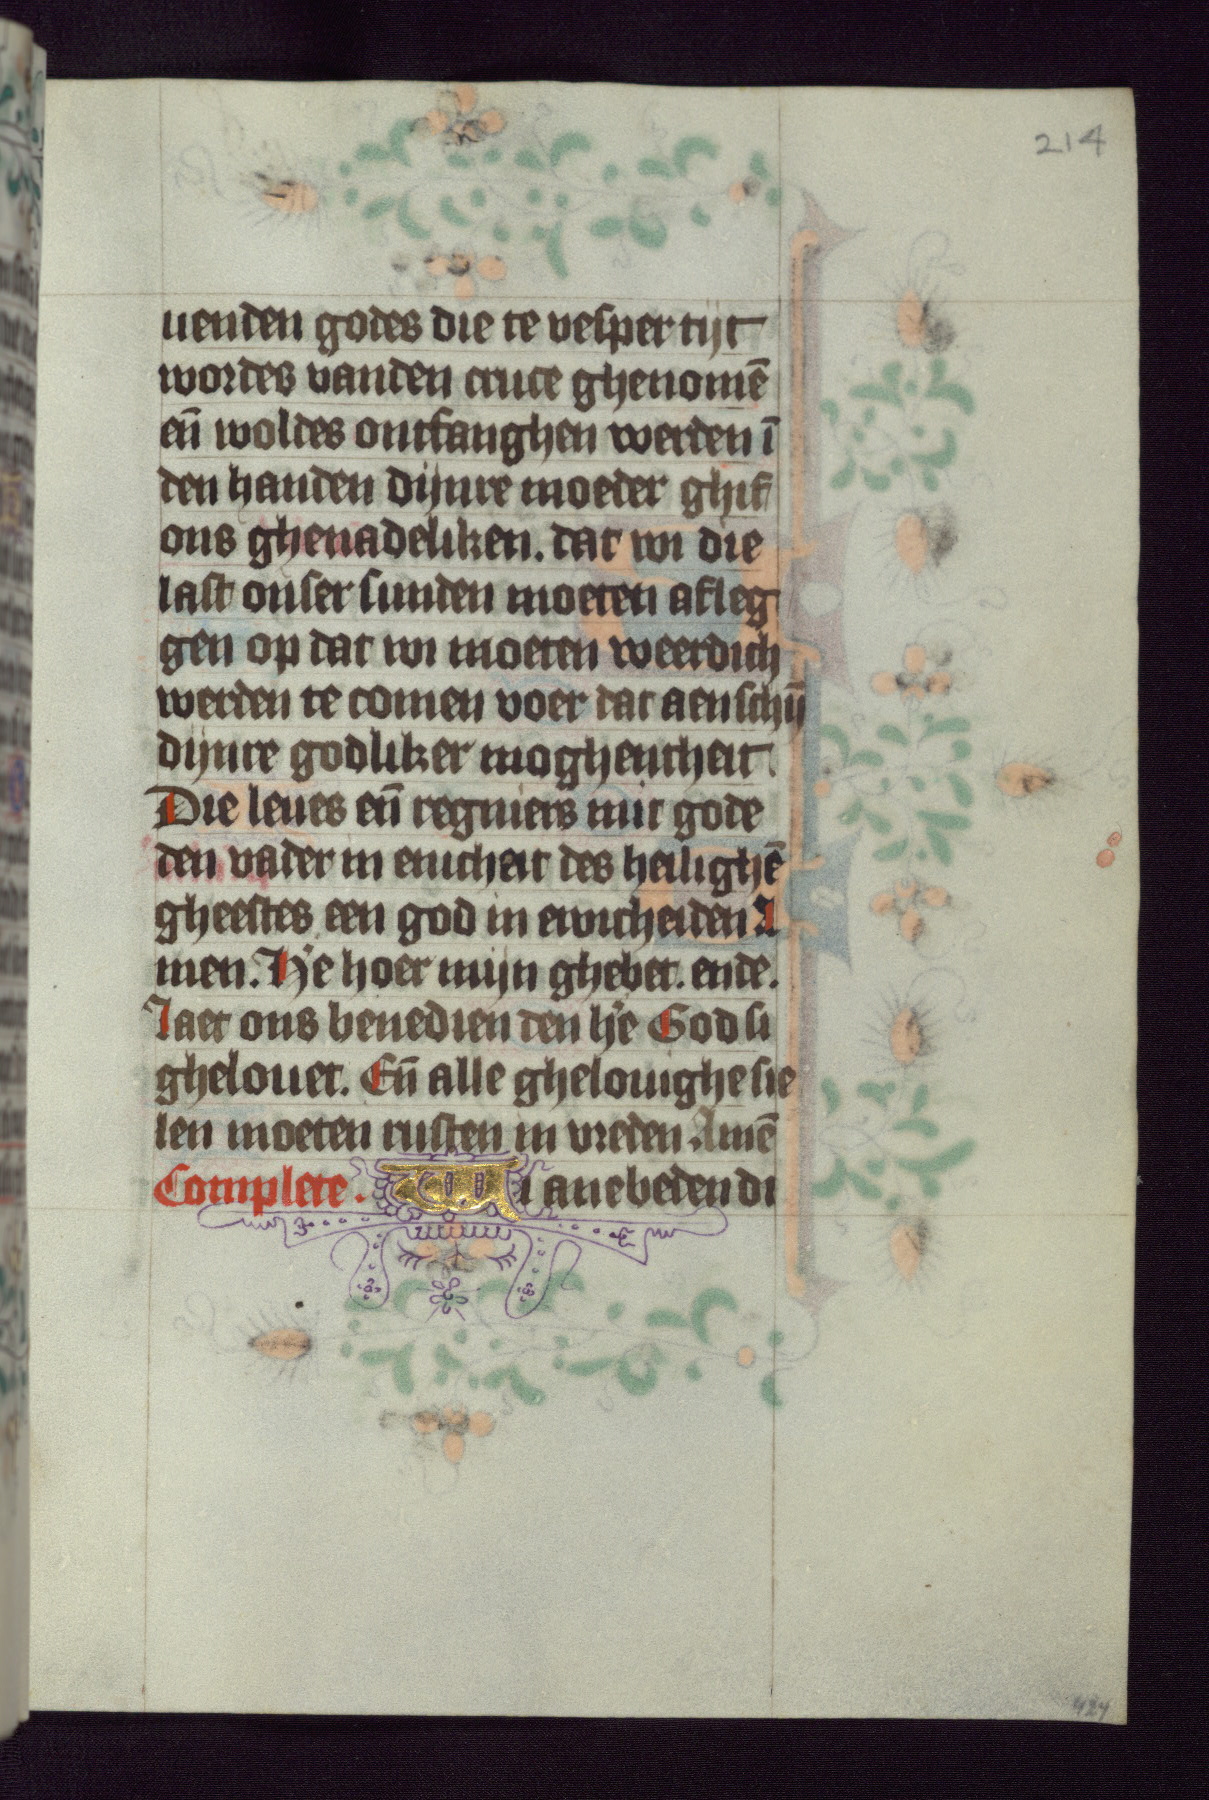 214
uenden godes die te vesper tijt
wordes vanden cruce ghenomē
eñ woldes ontfanghen werden ī
den handen dijnre moeder ghif
ons ghenadeliken. dat wi die
last onser sunden moeten afleg
gen op dat wi moeten weerdich
werden te comen voer dat aenschij̄
dijnre godliker moghentheit
Die leues eñ regniers mit gode
den vader in enicheit des heilighē
gheestes een god in ewicheiden A
men. He hoer mijn ghebet. ende.
laet ons benedien den he God si
ghelouet. Eñ alle ghelouighe sie
len moeten rusten in vreden Amē
Complete. WI anebeden di
424